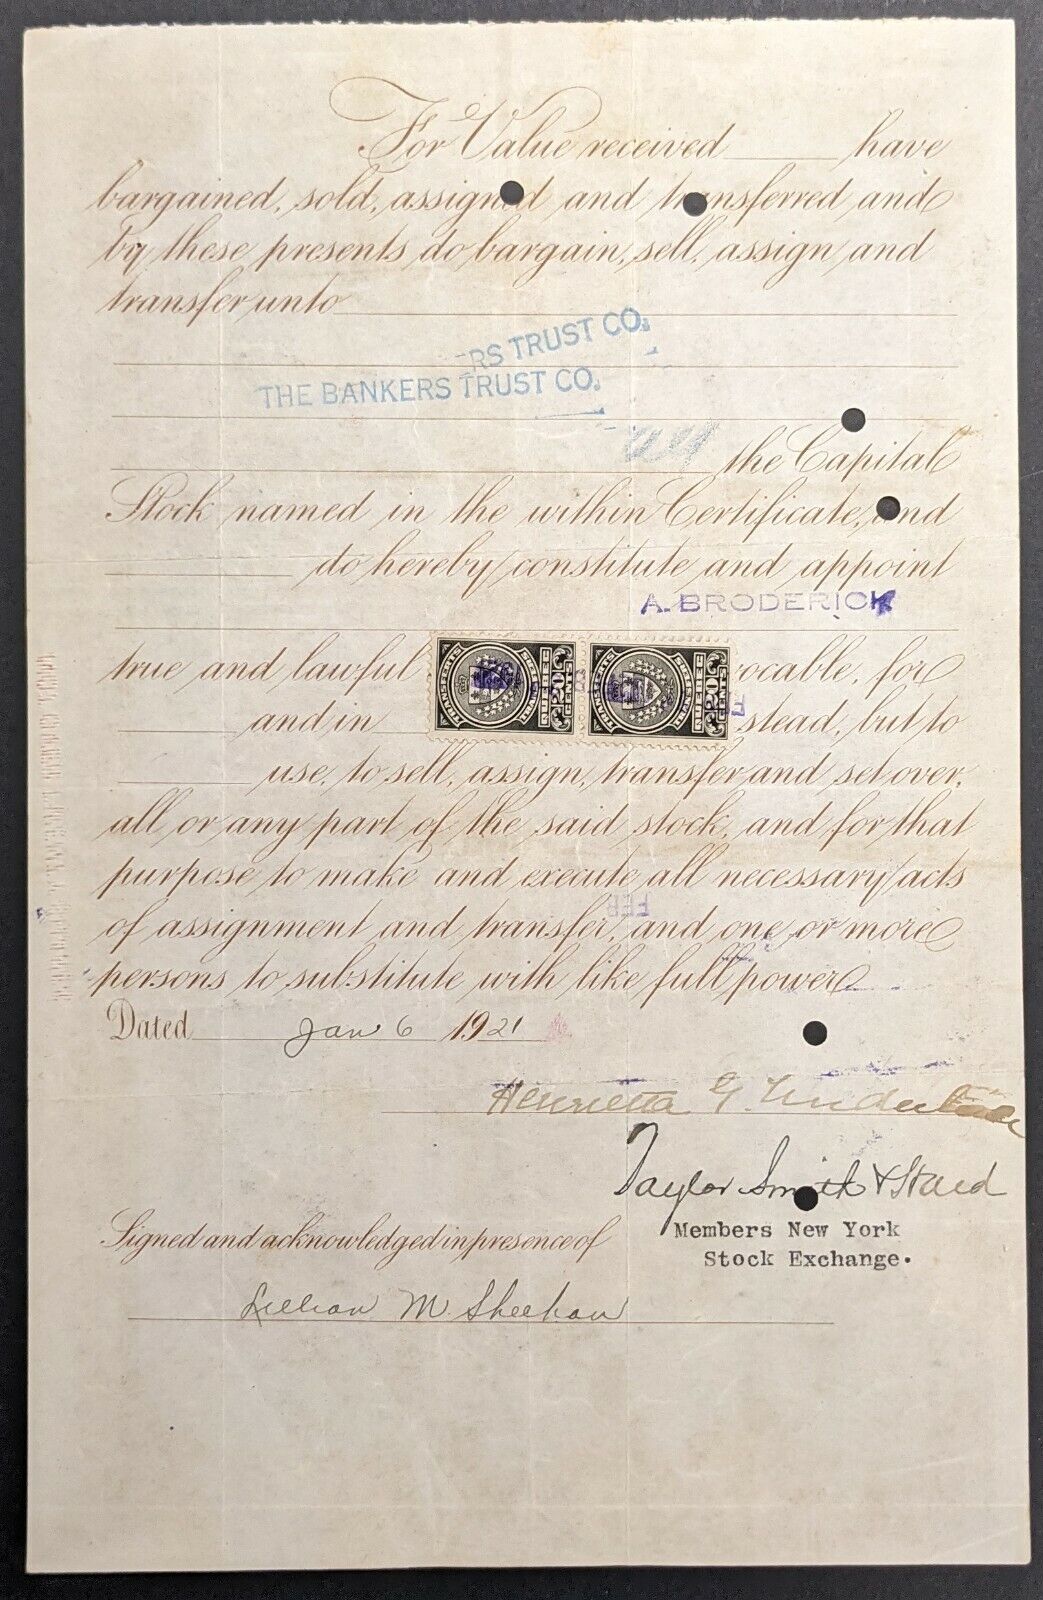 For Value received have
bargained, sold, assigned and transferred and
by these presents do bargain, sell, assign and
transfer unto
RS TRUST CO.
THE BANKERS TRUST CO.
the Capital
Stock named in the within Certificate, and
do hereby constitute and appoint
A. BRODERICK
true and lawful vocable, for
and in stead, but to
use, to sell, assign, transfer and set over,
all or any part of the said stock, and for that
purpose to make and execute all necessary acts
FEB
of assignment and transfer, and one or more
persons to substitute with like full power
Dated Jan 6 1921
Henrietta G.
Taylor Smith &
Members New York
Signed and acknowledged in presence of
Stock Exchange.
Lillian M Sheehan
TRANSFERTS
QUEBEC
20
CENTS
TRANSFERTS
QUEBEC
20
CENTS